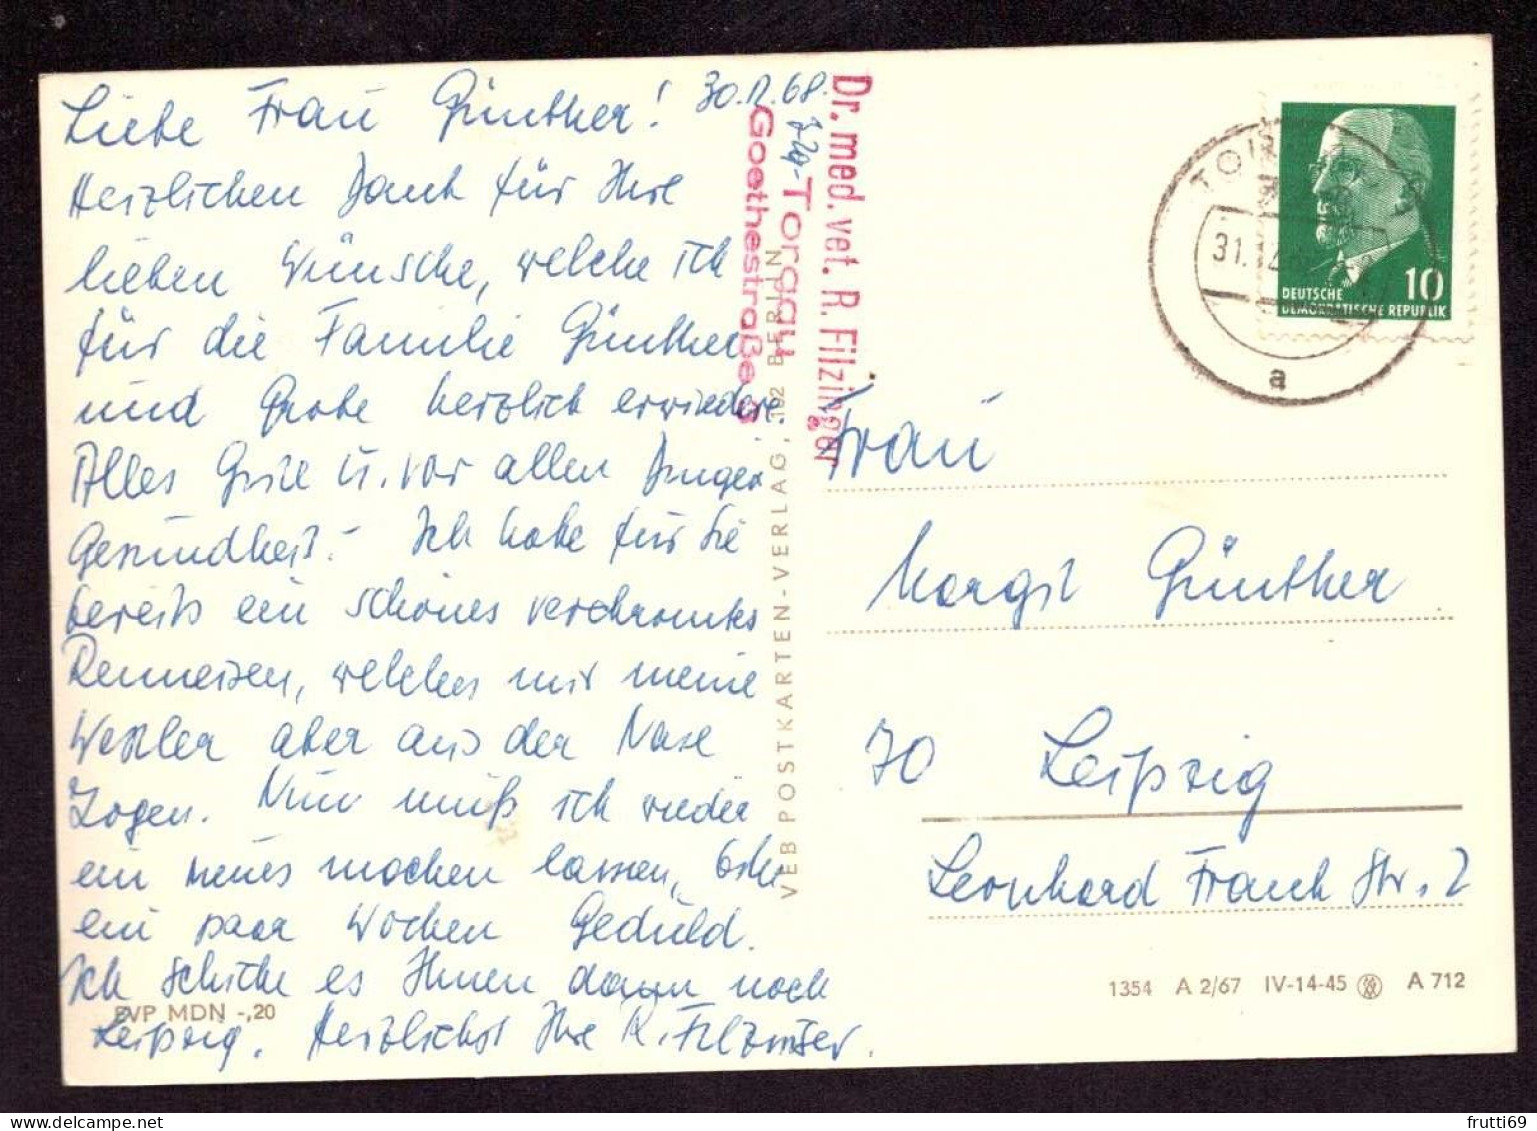 Liebe Frau Günther! 30.12.68.
Herzlichen Dank für Ihre
lieben Wünsche, welche ich
für die Familie Günther
und Grobe herzlich erwidere.
Alles Gute u. vor allen Dingen
Gesundheit. - Ich habe für Sie
bereits ein schönes verchromtes
Renneisen, welches mir meine
Westler aber aus der Nase
zogen. Nun muß ich wieder
ein neues machen lassen, bitte
ein paar Wochen Geduld.
Ich schicke es Ihnen dann nach
Leipzig. Herzlichst Ihre R. Filzinger.
EVP MDN -,20
Dr. med. vet. R. Filzinger
Torgau
Goethestraße 6
VEB POSTKARTEN-VERLAG, 102 BERLIN
TO
31.12
a
10
DEUTSCHE
DEMOKRATISCHE REPUBLIK
Frau
Margit Günther
70 Leipzig
Leonhard Frank Str. 2
1354 A 2/67 IV-14-45 A 712
frutti69